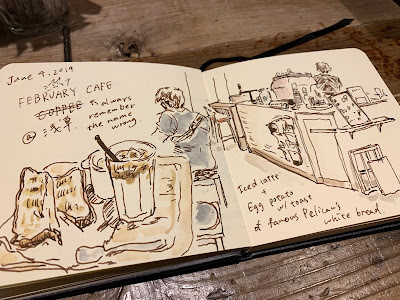 June 4. 2019
FEBRUARY CAFE
COFFEE always
remember
the name
wrong
@ 浅草.
Iced latte
+
Egg potato
w/ toast
of famous Pelican's
white bread.